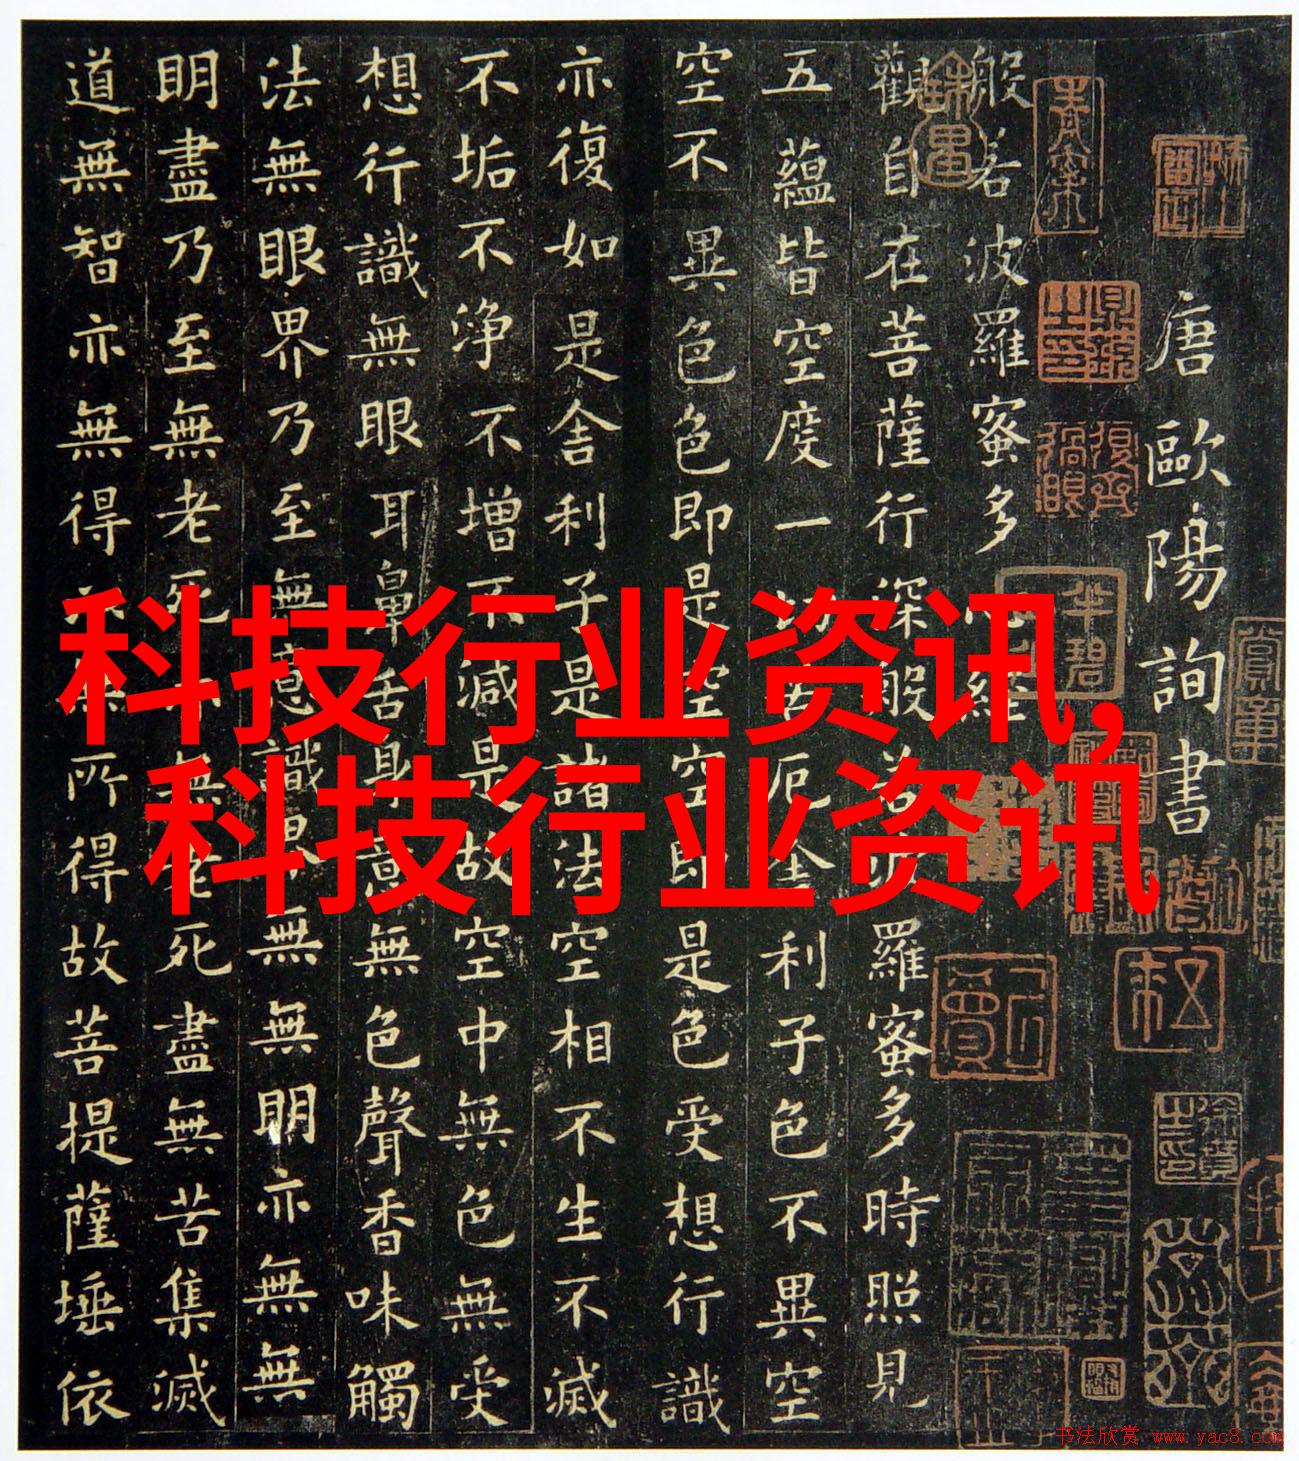 唐歐陽詢書
般若波羅蜜多心經
觀自在菩薩行深般若波羅蜜多時照見
五蘊皆空度一切苦厄舍利子色不異空
空不異色色即是空空即是色受想行識
亦復如是舍利子是諸法空相不生不滅
不垢不淨不增不減是故空中無色無受
想行識無眼耳鼻舌身意無色聲香味觸
法無眼界乃至無意識界無無明亦無無
明盡乃至無老死亦無老死盡無苦集滅
道無智亦無得以無所得故菩提薩埵依
科技行业资讯,
科技行业资讯
书法欣赏 www.yac8.com